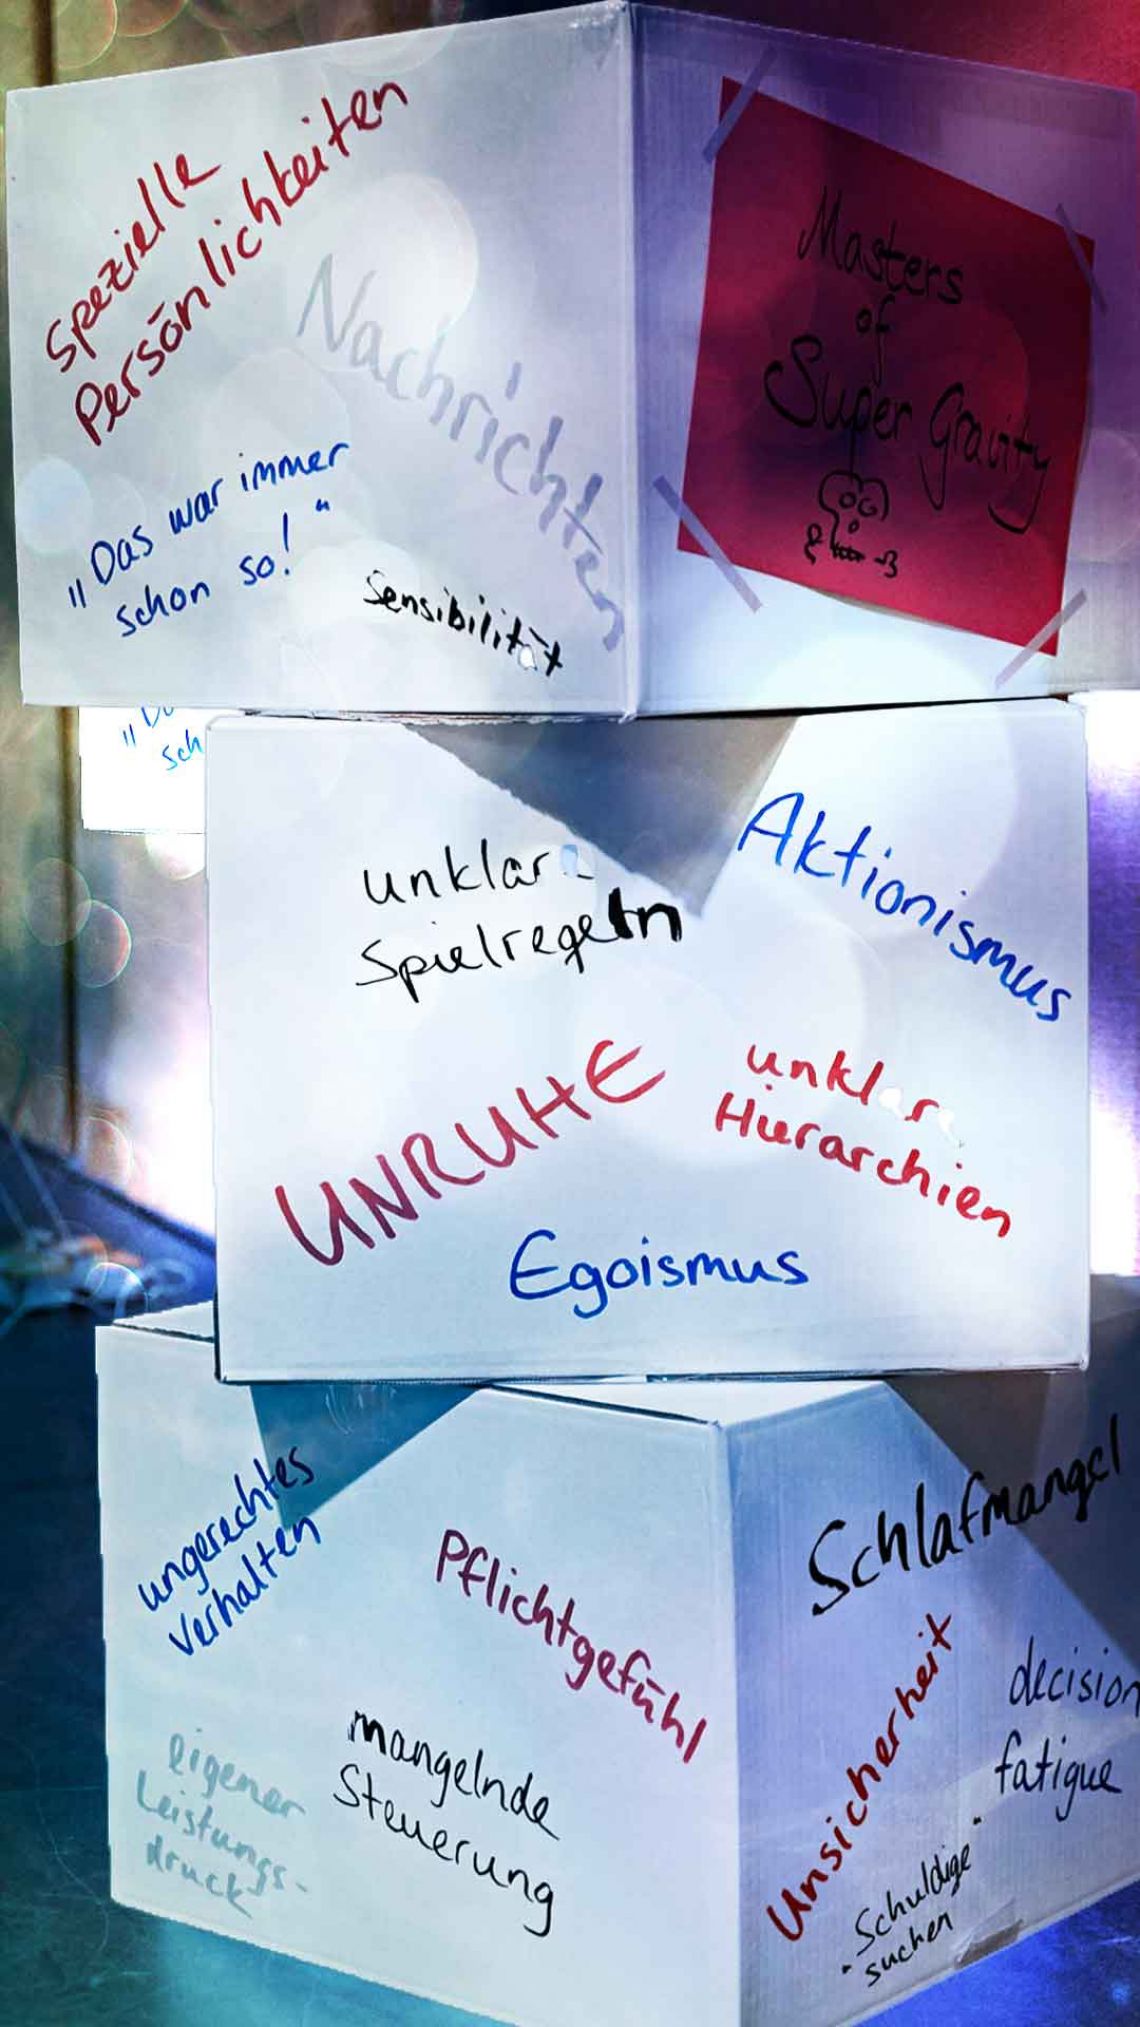 Spezielle
Persönlichkeiten
Nachrichten
„Das war immer
schon so!“
Sensibilität
Masters
of
Super Gravity
„Da
sch
unklar
Spielregeln
Aktionismus
UNRUHE
unklare
Hierarchien
Egoismus
ungerechtes
Verhalten
Pflichtgefühl
eigener
Leistungs-
druck
mangelnde
Steuerung
Schlafmangel
Unsicherheit
decision
fatigue
"Schuldige"
suchen